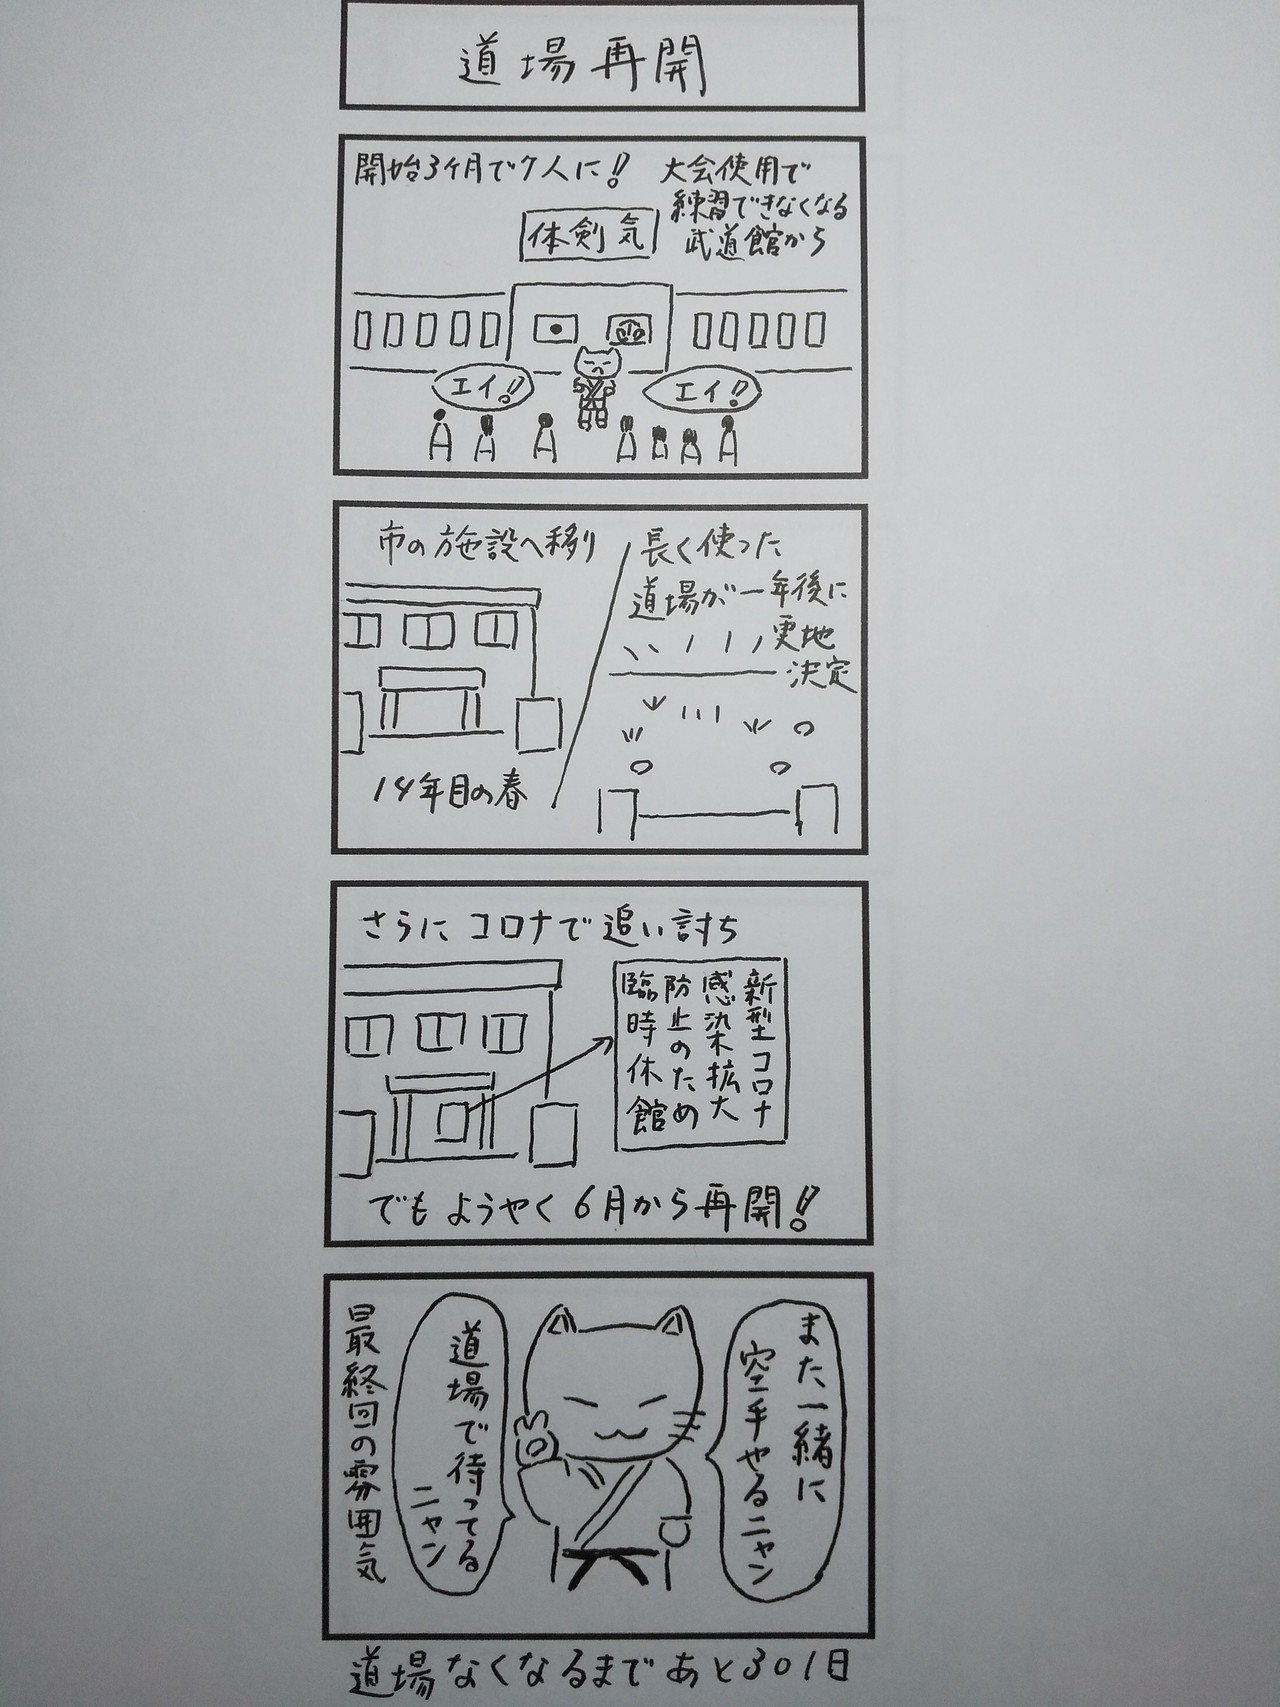 道場再開
開始3ヶ月で7人に!!
大会使用で
練習できなくなる
武道館から
体剣気
エイ!!
エイ!!
市の施設へ移り
14年目の春
長く使った
道場が一年後に
更地
決定
さらにコロナで追い討ち
新型コロナ
感染拡大
防止のため
臨時休館
でもようやく6月から再開!!
また一緒に
空手やるニャン
道場で待ってる
ニャン
最終回の雰囲気
道場なくなるまであと301日